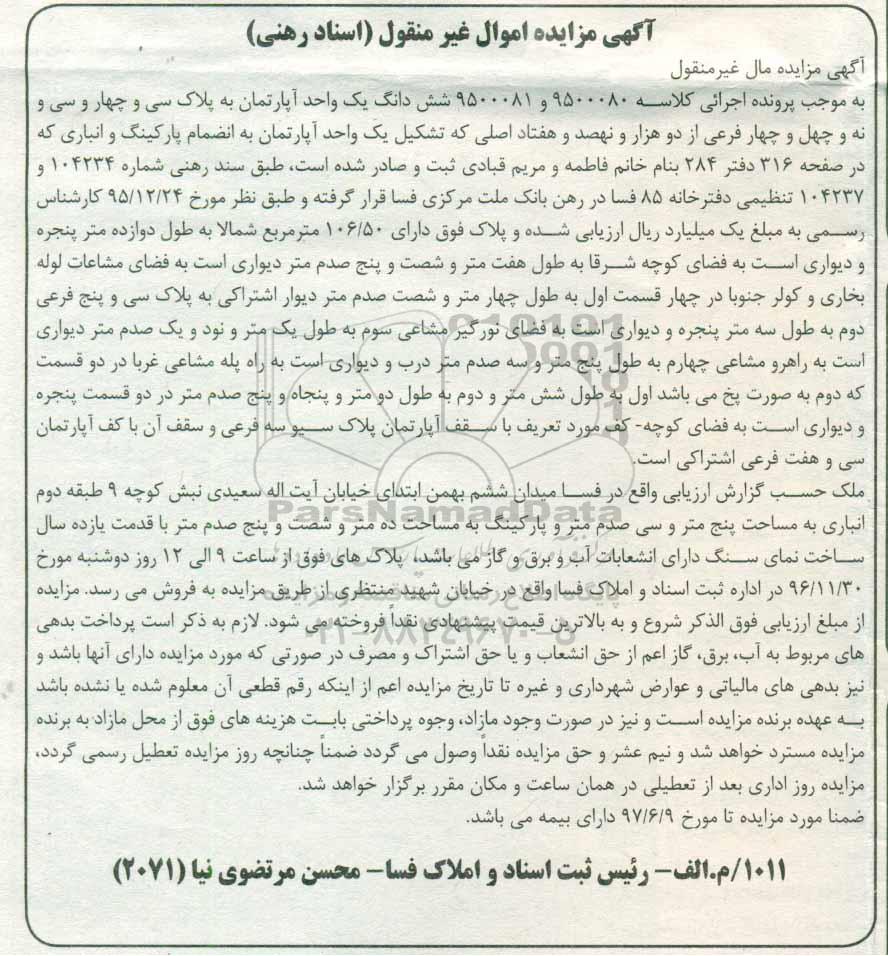 آگهی مزایده اموال غیر منقول (اسناد رهنی)
آگهی مزایده مال غیرمنقول
به موجب پرونده اجرائی کلاسه ۹۵۰۰۰۸۰ و ۹۵۰۰۰۸۱ شش دانگ یک واحد آپارتمان به پلاک سی و چهار و سی و
نه و چهل و چهار فرعی از دو هزار و نهصد و هفتاد اصلی که تشکیل یک واحد آپارتمان به انضمام پارکینگ و انباری که
در صفحه ۳۱۶ دفتر ۲۸۴ بنام خانم فاطمه و مریم قبادی ثبت و صادر شده است، طبق سند رهنی شماره ۱۰۴۲۳۴ و
۱۰۴۲۳۷ تنظیمی دفترخانه ۸۵ فسا در رهن بانک ملت مرکزی فسا قرار گرفته و طبق نظر مورخ ۹۵/۱۲/۲۴ کارشناس
رسمی به مبلغ یک میلیارد ریال ارزیابی شده و پلاک فوق دارای ۱۰۶/۵۰ مترمربع شمالا به طول دوازده متر پنجره
و دیواری است به فضای کوچه شرقا به طول هفت متر و شصت و پنج صدم متر دیواری است به فضای مشاعات لوله
بخاری و کولر جنوبا در چهار قسمت اول به طول چهار متر و شصت صدم متر دیوار اشتراکی به پلاک سی و پنج فرعی
دوم به طول سه متر پنجره و دیواری است به فضای نورگیر مشاعی سوم به طول یک متر و نود و یک صدم متر دیواری
است به راهرو مشاعی چهارم به طول پنج متر و سه صدم متر درب و دیواری است به راه پله مشاعی غربا در دو قسمت
که دوم به صورت پخ می باشد اول به طول شش متر و دوم به طول دو متر و پنجاه و پنج صدم متر در دو قسمت پنجره
و دیواری است به فضای کوچه- کف مورد تعریف با سقف آپارتمان پلاک سیو سه فرعی و سقف آن با کف آپارتمان
سی و هفت فرعی اشتراکی است.
ملک حسب گزارش ارزیابی واقع در فسا میدان ششم بهمن ابتدای خیابان آیت اله سعیدی نبش کوچه ۹ طبقه دوم
انباری به مساحت پنج متر و سی صدم متر و پارکینگ به مساحت ده متر و شصت و پنج صدم متر با قدمت یازده سال
ساخت نمای سنگ دارای انشعابات آب و برق و گاز می باشد، پلاک های فوق از ساعت ۹ الی ۱۲ روز دوشنبه مورخ
۹۶/۱۱/۳۰ در اداره ثبت اسناد و املاک فسا واقع در خیابان شهید منتظری از طریق مزایده به فروش می رسد. مزایده
از مبلغ ارزیابی فوق الذکر شروع و به بالاترین قیمت پیشنهادی نقداً فروخته می شود. لازم به ذکر است پرداخت بدهی
های مربوط به آب، برق، گاز اعم از حق انشعاب و یا حق اشتراک و مصرف در صورتی که مورد مزایده دارای آنها باشد و
نیز بدهی های مالیاتی و عوارض شهرداری و غیره تا تاریخ مزایده اعم از اینکه رقم قطعی آن معلوم شده یا نشده باشد
به عهده برنده مزایده است و نیز در صورت وجود مازاد، وجوه پرداختی بابت هزینه های فوق از محل مازاد به برنده
مزایده مسترد خواهد شد و نیم عشر و حق مزایده نقداً وصول می گردد ضمناً چنانچه روز مزایده تعطیل رسمی گردد،
مزایده روز اداری بعد از تعطیلی در همان ساعت و مکان مقرر برگزار خواهد شد.
ضمنا مورد مزایده تا مورخ ۹۷/۶/۹ دارای بیمه می باشد.
۱۰۱۱/م.الف- رئیس ثبت اسناد و املاک فسا- محسن مرتضوی نیا (۲۰۷۱)
ParsNamadData
۰۲۱-۸۸۳۴۹۶۷۰-۵